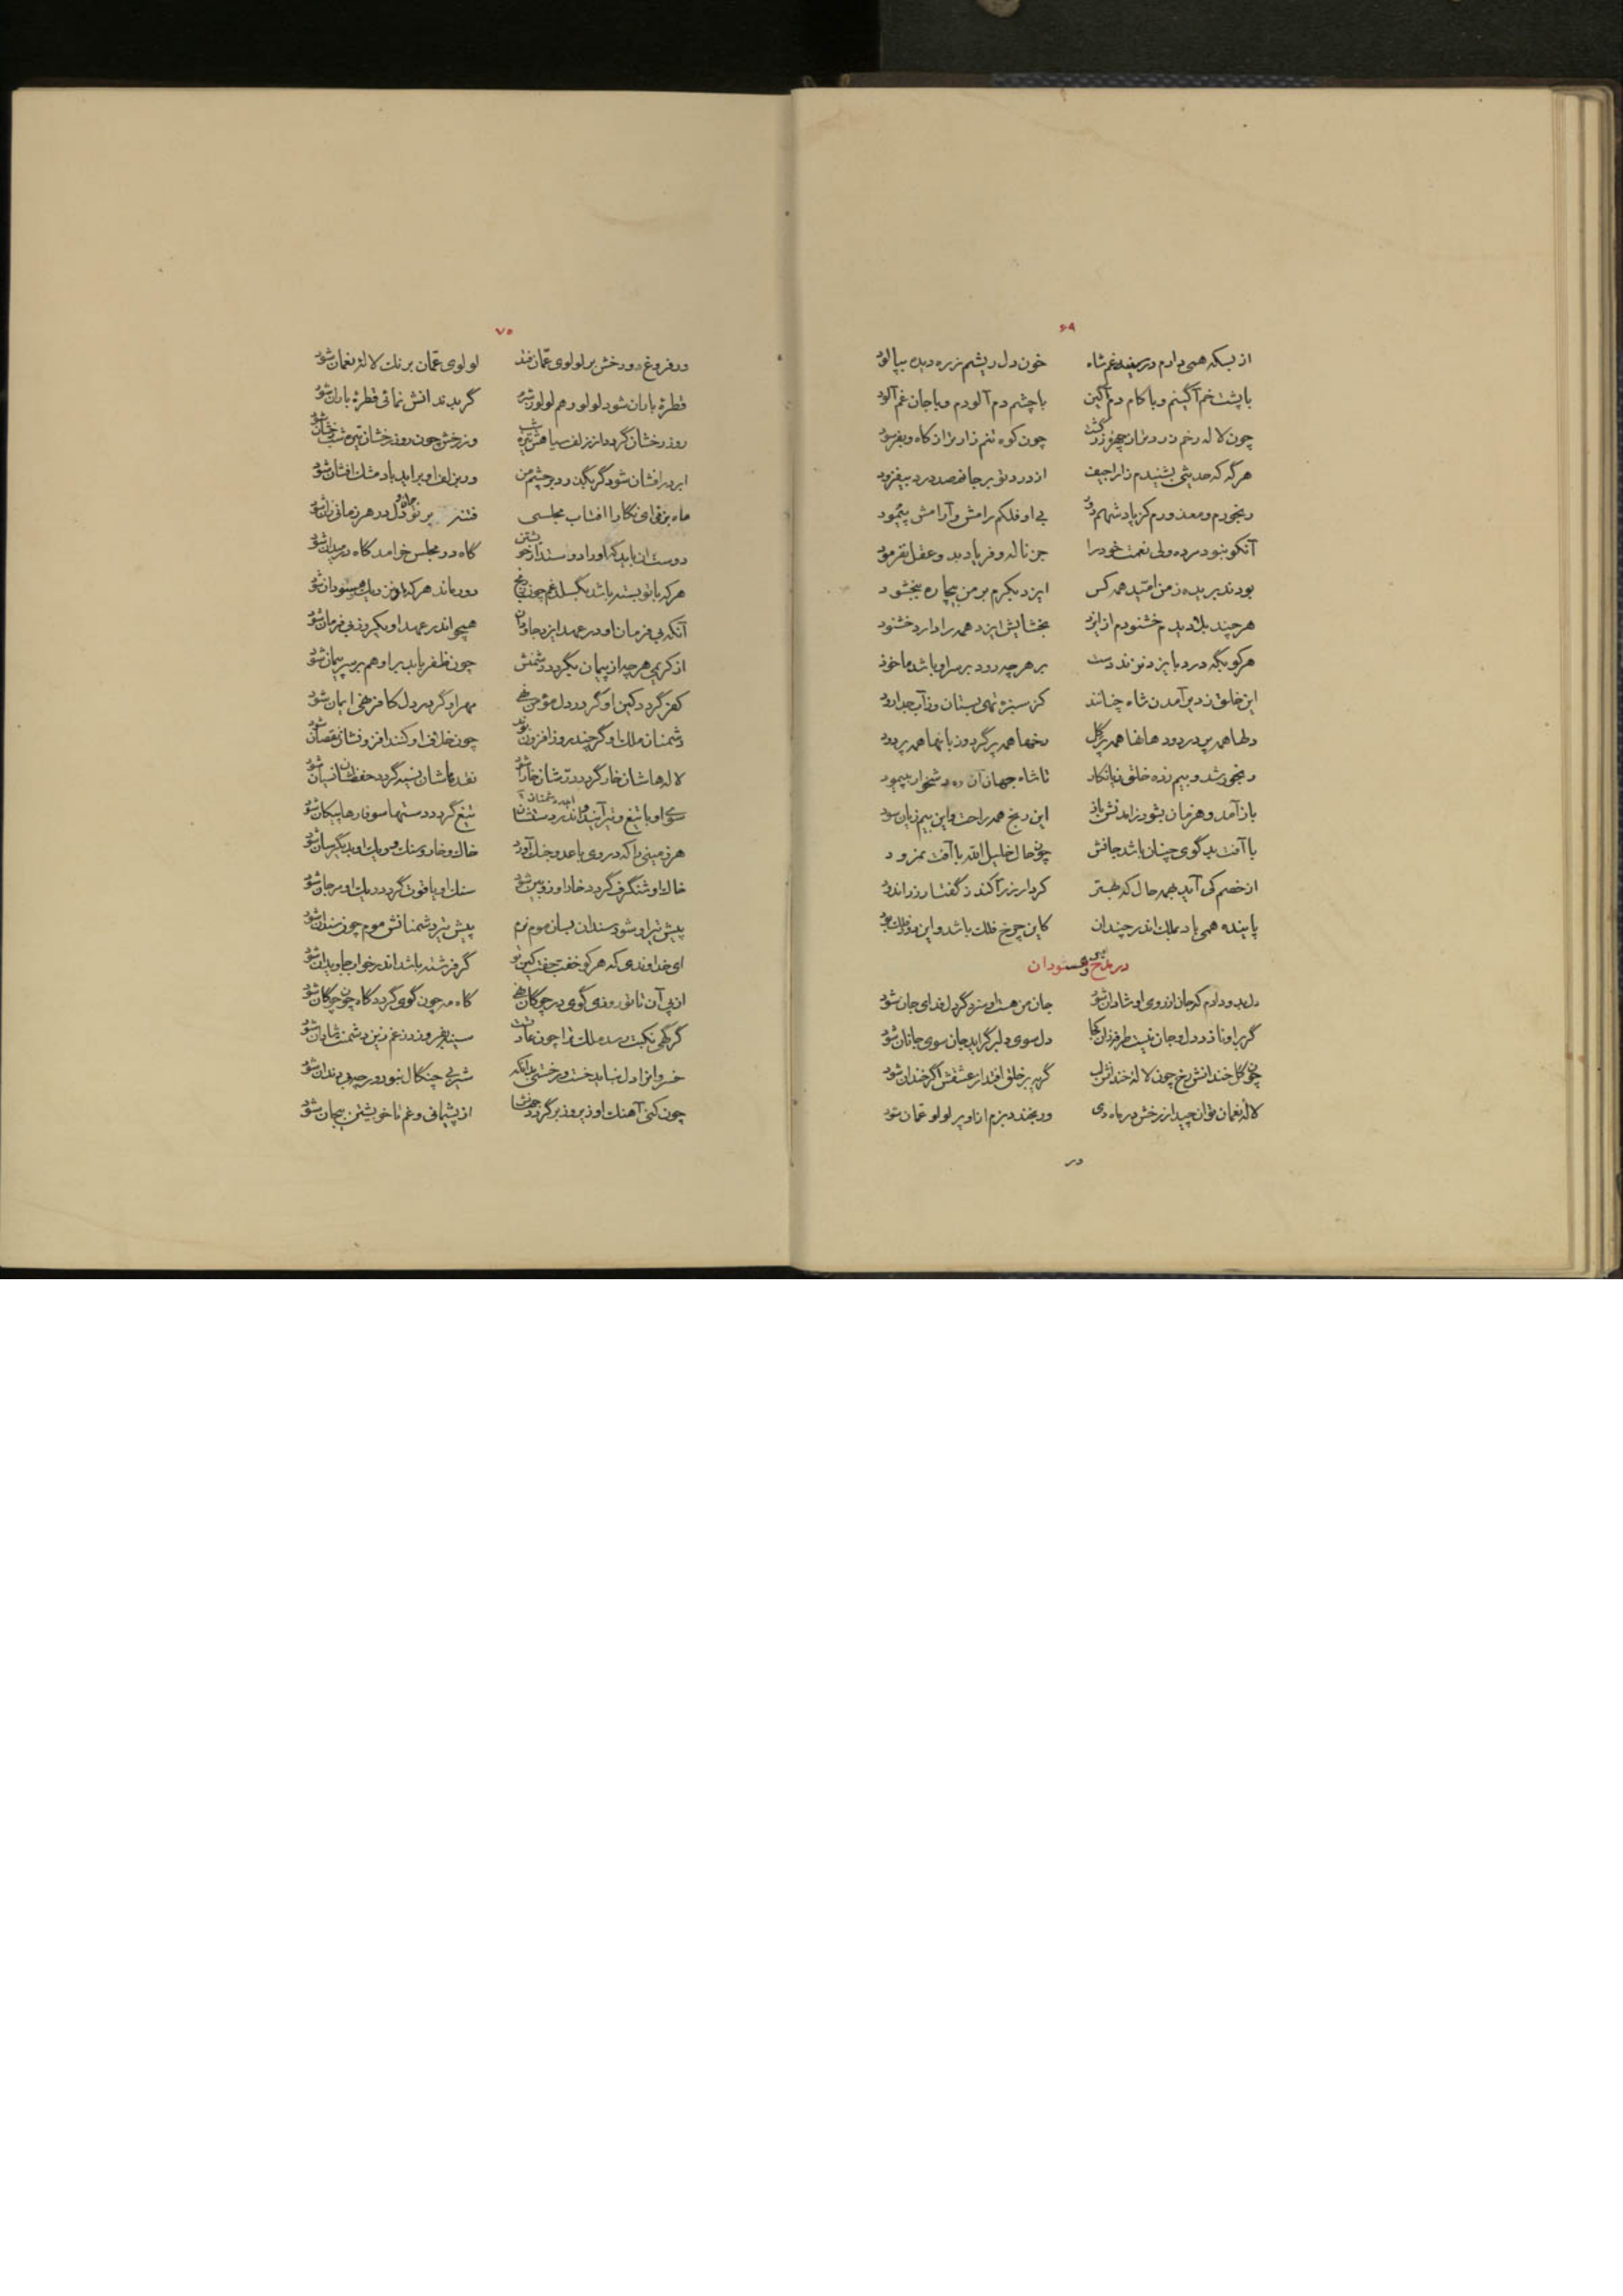 ۶۹
از بسکه همی دارم در سینه غم شاه خون دل ریشم ز ره دیده بپالود
با پشت خم آگینم و با کام دم آگین با چشم دم آلودم و با جان غم آلود
چون لاله رخم زرد تر از چهره زر گشت چون کوه تنم زارتر از کاه و بفرسود
هرگه که حدیثی بشنیدم ز اراجیف از درد تو بر جانم صد درد بیفزود
رنجورم و معذورم کز پادشهم دور بی او فلکم رامش و آرامش پیمود
آنکو بنود مرده ولی نعمت خود را جز ناله و فریاد بد و عقل نفرمود
بودند بریده ز من امّید همه کس ایزد بکرم بر من بیچاره ببخشود
هرچند بلا دیدم خشنودم از ایزد بخشایش ایزد همه را دارد خشنود
هرکو بگه درد بایزد نزند دست بر هرچه رود بر سر او باشد ماخوذ
این خلق ز دیر آمدن شاه چنانند کز سبزه تهی بستان وز آب جدا رود
دلها همه پر درد و هانها همه پر گل رخها همه پر گرد و زبانها همه پر دود
رنجور شد و بیم زده خلق زیانکار تا شاه جهان آن ره دشخوار بپیمود
باز آمد و هزمان بشود زاندنش باز این رنج همه راحت و این بیم زیان سود
با آفت بدگوی چنان باشد جانش چون حال خلیل الله با آفت نمرود
از خصم کی آید بهمه حال که بهتر کردار زر آکند ز گفتار زر اندود
پاینده همی باد بملک اندر چندان کاین چرخ فلک باشد و این بود
در مدح ودان
دل بدو دادم که جان از روی او شادان شود جان من هست او سزد گر دل فدای جان شود
گر بر او نازد دل و جان نیست طرفه زان کجا دل سوی دلبر گراید جان سوی جانان شود
چون گل خندانش رخ چون لاله خندانش لب گریه بر خلق افتد از عشقش اگر خندان شود
لاله نعمان توان چید از رخش در ماه دی ور بخندد بزم از او پر لولو عمّان شود
در
۷۰
ور فروغ دو رخش بر لولوی عمّان فتد لولوی عمّان برنگ لاله نعمان شود
قطره باران شود لولو و هم لولو شود گر بدندانش نمائی قطره باران شود
روز رخشان گردد از زلف سیاهش تیره شب وز رخش چون روز رخشان تیره شب رخشان شود
ابر در افشان شود گر بگذرد بر چشم من ور بزلف او براید باد مشک افشان شود
ماه بزمی ای نگار افتاب مجلسی فتنه بر تو ماه و دل در هر زمانی زان شود
دوستان باید که او را دوستدار از خویشتن گاه در مجلس خرامد گاه در میدان شود
هرکه با تو بسته باشد بگسلد غم چون رنج دور ماند هرکه او نزدیک شود
آنکه بی فرمان او در عهد ایزد جاودان هیچ اندر عهد او یکروز بی فرمان شود
از کریمی هرچه از پیمان بگردد دشمنش چون ظفر یابد بر او هم بر سر پیمان شود
کفر گردد کین او گر در دل مؤمن نهی مهر او گر در دل کافر نهی ایمان شود
دشمنان ملک او گر چند روز افزون بوند چون خلاف او کنند افزونشان نقصان شود
لاله هاشان خار گردد درّشان خارا شود نقدهاشان نسیه گردد حفظشان نسیان شود
سوی او با تیغ و تیر آیند و اندر دستشان تیغ گردد دستها سوفارها پیکان شود
هر زمینی را که در وی با عدو جنگ آورد خاک و خار و سنگ و ریگ او بدیگر سان شود
خاک او شنگرف گردد خار او زوبین شود سنگ او یاقوت گردد ریگ او مرجان شود
پیش تیر او شود سندان بسان موم نرم پیش تیر دشمنانش موم چون سندان شود
ای خداوندی که هرکو خفت جفت کین تو گر فرشته باشد اندر خواب جاویدان شود
از پی آن تا تو روزی گوی در چوگان نهی گاه مه چون گوی گردد گاه چون چوگان شود
گر گهی نکبت رسد ملک ترا چون عادت سینه بفروزد ز غم زین دشمنت شادان شود
خسروانرا دل نباید خست ور خستی بدانکه شیر بی چنگال نبود ور چه بی دندان شود
چون کنی آهنگ او زیر و زبر گردد جهانش از پشیمانی و غم تا خویشتن بیجان شود